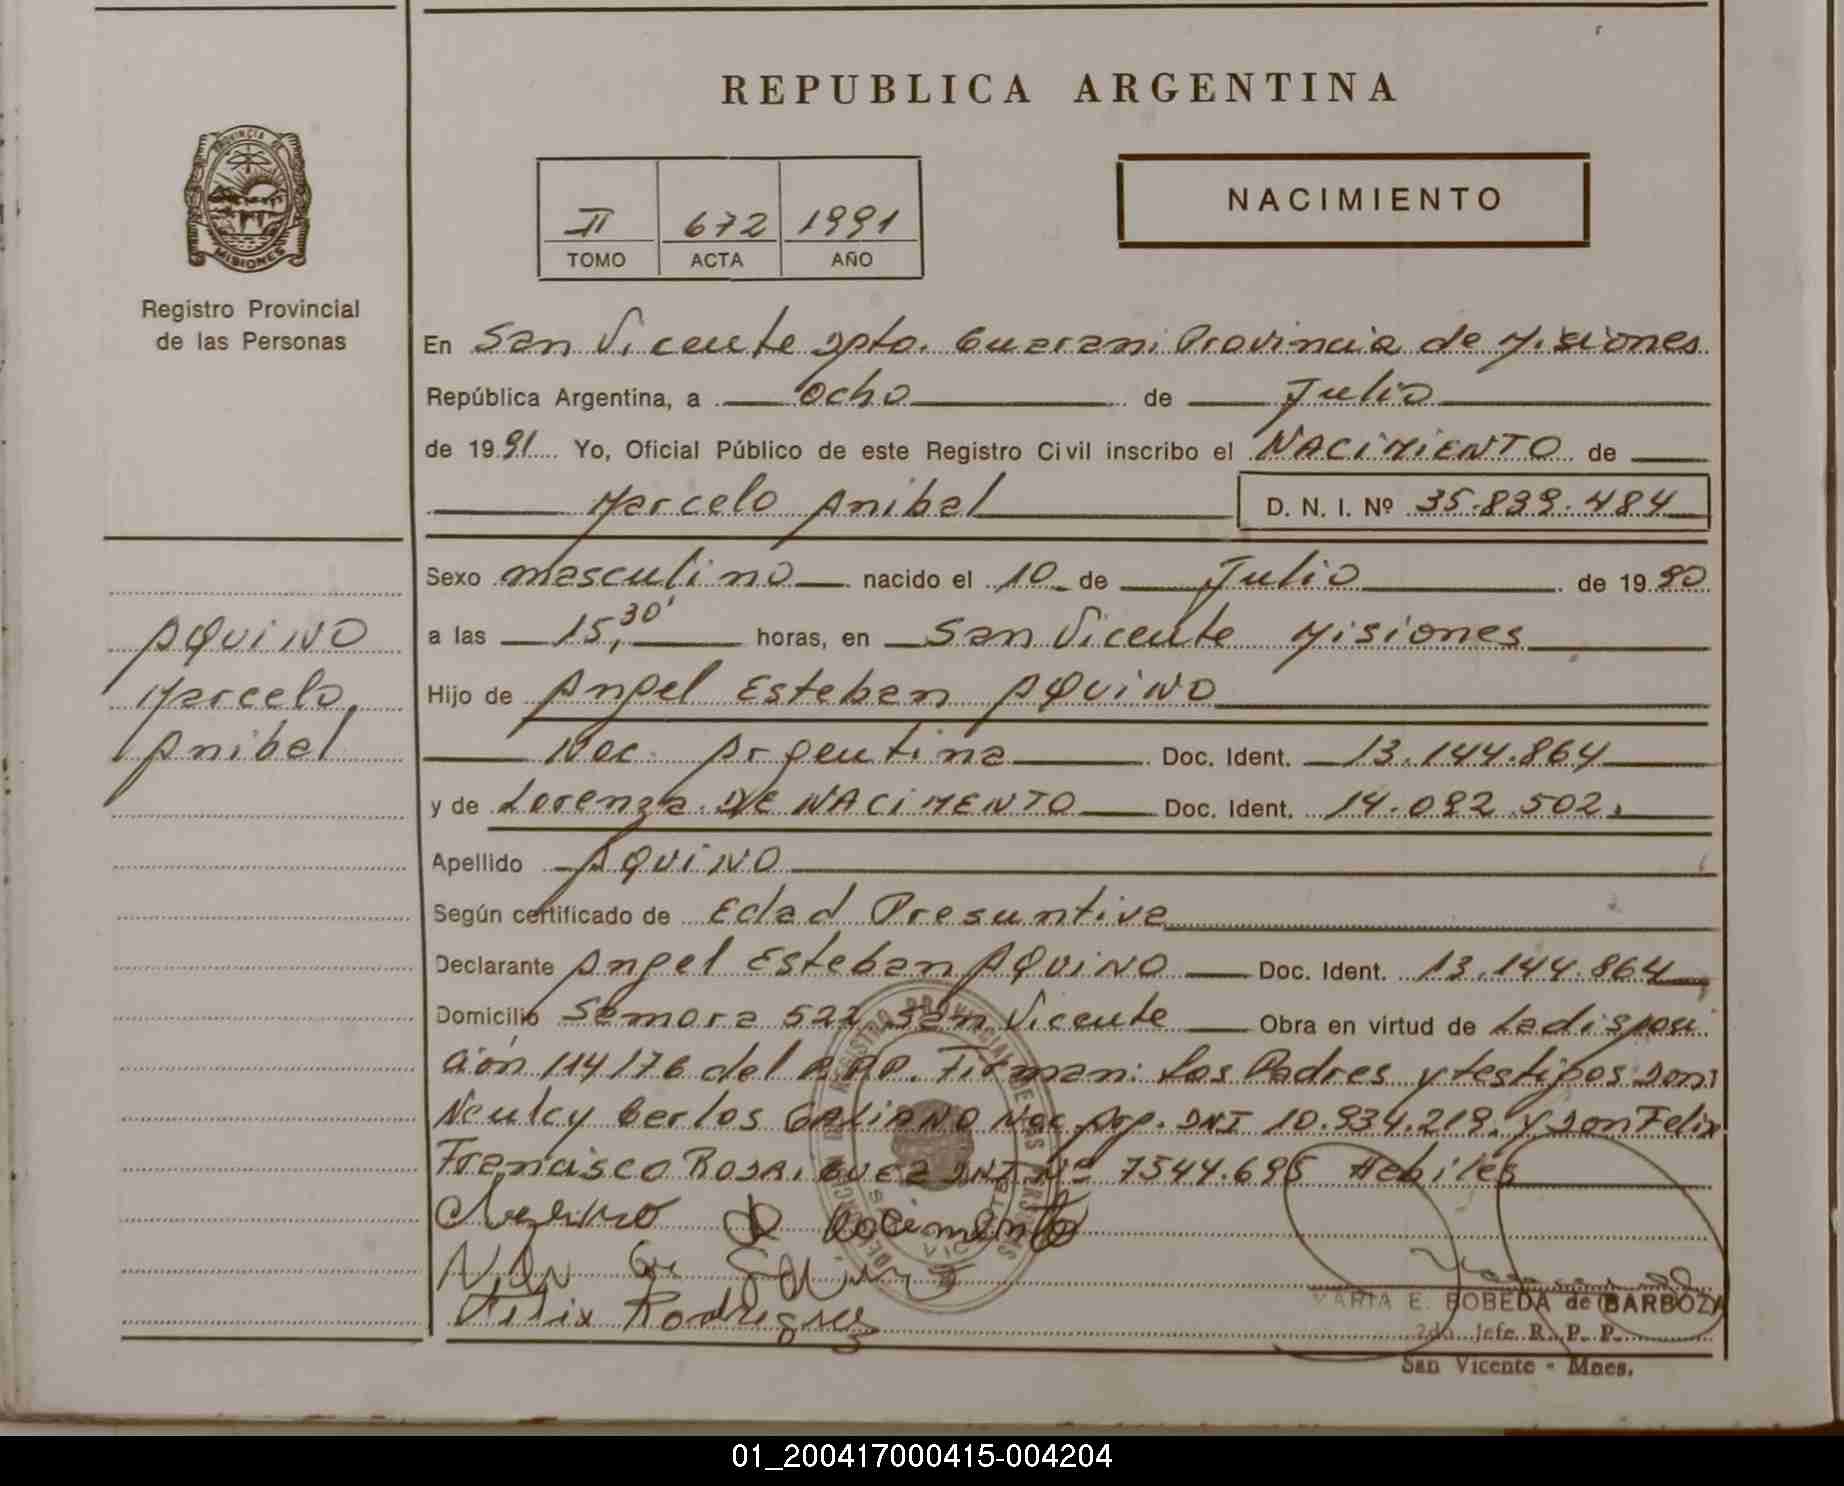 REPUBLICA ARGENTINA
PROVINCIA DE
MISIONES
Registro Provincial
de las Personas
II 672 1991
TOMO ACTA AÑO
NACIMIENTO
En San Vicente Dpto. Guarani Provincia de Misiones
República Argentina, a ocho de Julio
de 1991 Yo, Oficial Público de este Registro Civil inscribo el NACIMIENTO de
Marcelo Anibal D. N. I. Nº 35.839.484
Sexo masculino nacido el 10 de Julio de 1990
a las 15,30' horas, en San Vicente Misiones
Hijo de Angel Esteban AQUINO
Nac. Argentina Doc. Ident. 13.144.864
y de Lorenza DE NACIMENTO Doc. Ident. 14.092.502.
Apellido AQUINO
Según certificado de Edad Presuntiva
Declarante Angel Esteban AQUINO Doc. Ident. 13.144.864
Domicilio 522 San Vicente Obra en virtud de la disposi
ción 114/76 del R.P.P. Firman: Los Padres y testigos Don:
Carlos GALIANO Nac. Arg. DNI 10.934.219. y Don Felix
Francisco RODRIGUEZ DNI Nº 7544.695 Habiles
AQUINO
Marcelo
Anibal
Felix Rodrigues
MARIA E. BOBEDA de BARBOZA
2do. Jefe R. P. P.
San Vicente - Mnes.
01_200417000415-004204